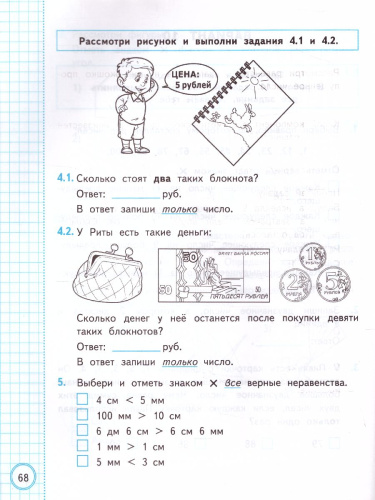 Рассмотри рисунок и выполни задания 4.1 и 4.2.
ЦЕНА:
5 рублей
4.1. Сколько стоят два таких блокнота?
Ответ: руб.
В ответ запиши только число.
4.2. У Риты есть такие деньги:
50
БИЛЕТ БАНКА РОССИИ
50
50
ПЯТЬДЕСЯТ РУБЛЕЙ
1
2
РУБЛЯ
5
РУБЛЕЙ
Сколько денег у неё останется после покупки девяти
таких блокнотов?
Ответ: руб.
В ответ запиши только число.
5. Выбери и отметь знаком × все верные неравенства.
4 см < 5 мм
100 мм > 10 см
6 дм 6 см > 6 см 6 мм
1 мм > 1 см
5 мм < 3 см
68